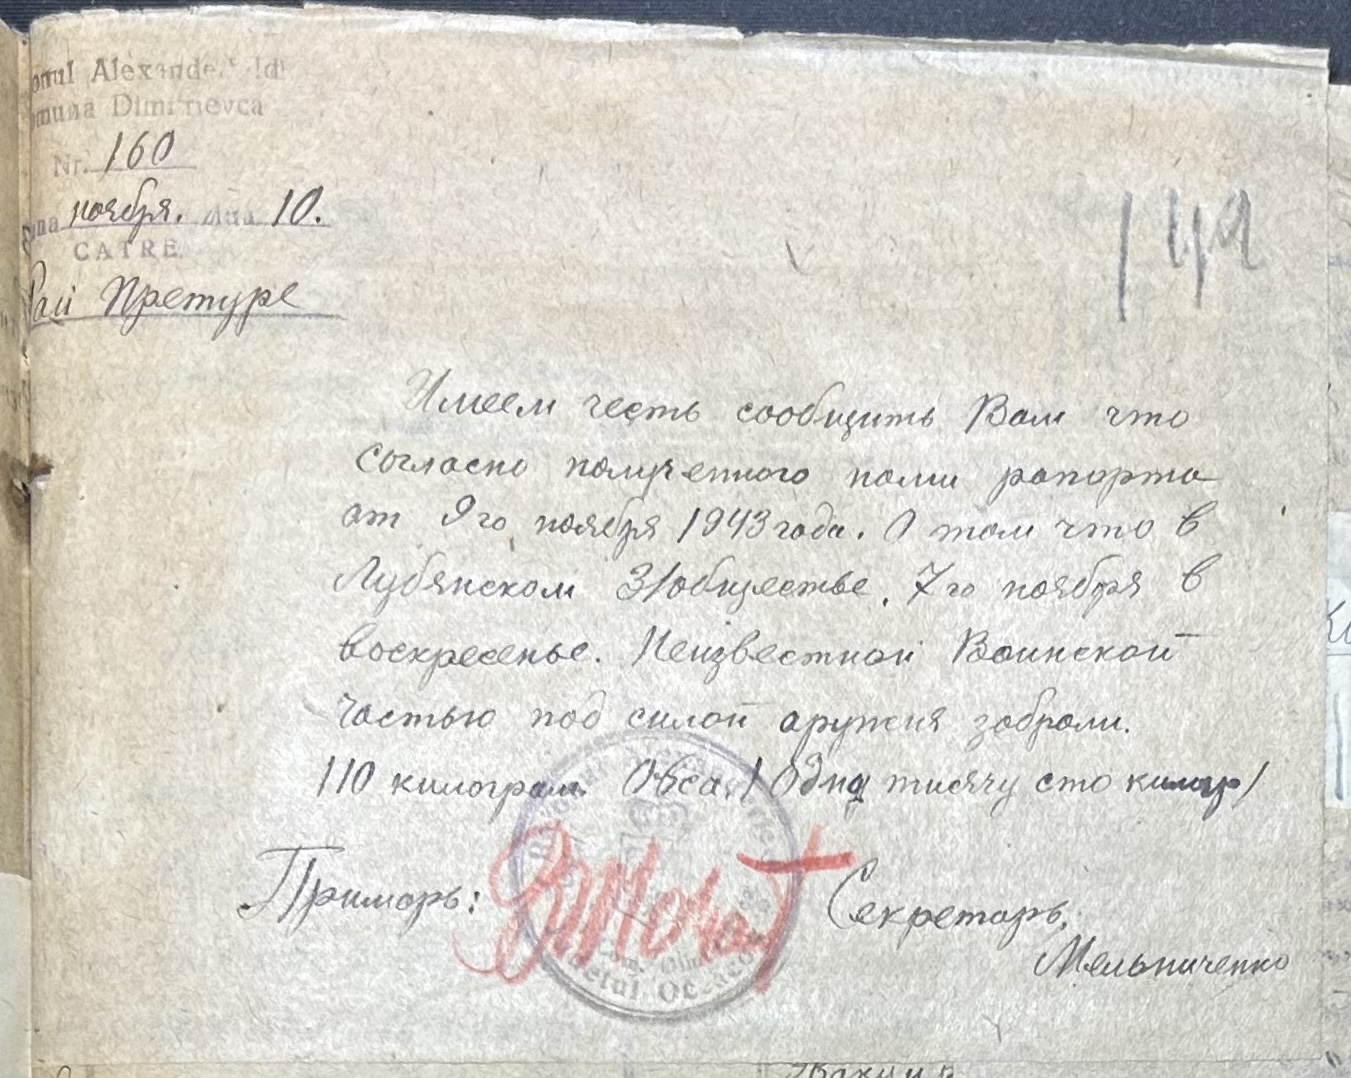 Alexande
Dimitrievca
Nr. 160
ноября. 10.
CATRE
Рай Претуре
149
Имеем честь сообщить Вам что
согласно полученного нами рапорта
от 9го ноября 1943 года. О том что в
Лубянском З/обществе. 7го ноября в
воскресенье. Неизвестной Воинской
частью под силой аружия забрали.
110 килограм. Овса. / Одна тисячу сто килогр/
Примарь: Секретарь,
Мельниченко